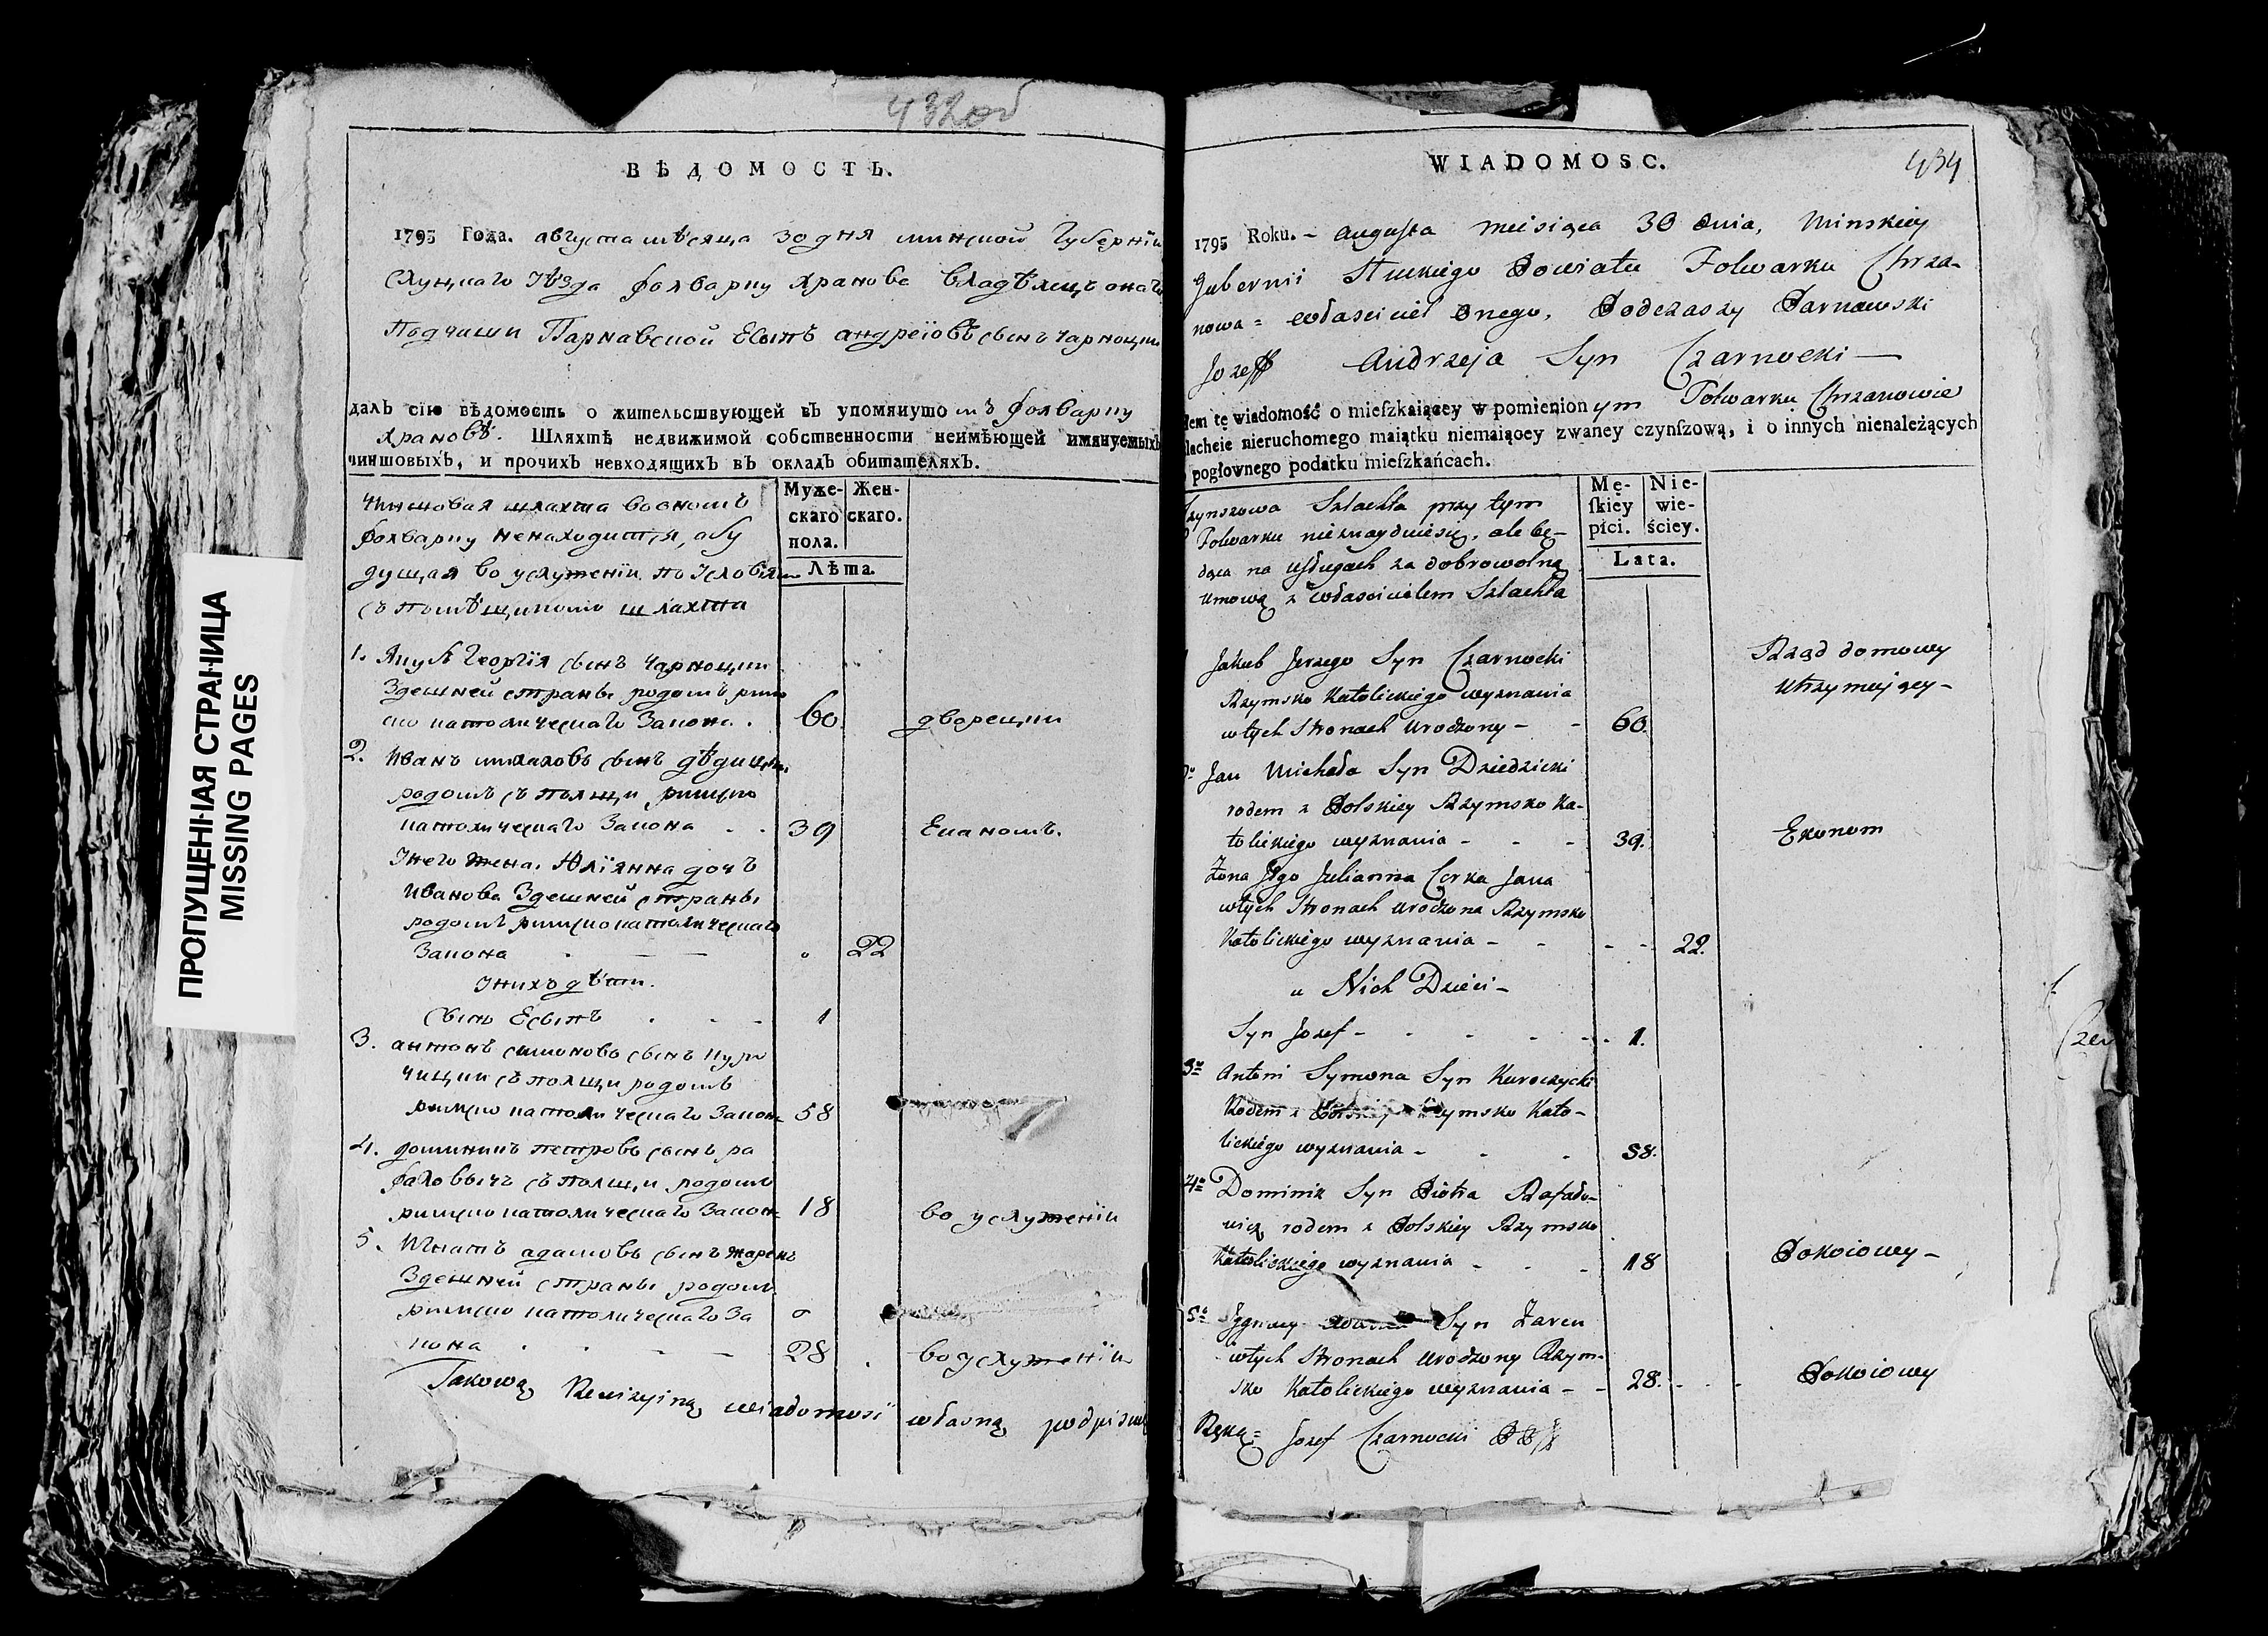 ПРОПУЩЕННАЯ СТРАНИЦА
MISSING PAGES
432об
ВѢДОМОСТЬ.
1795 Года. августа мѣсяца 30 дня минской Губерніи
Слуцкаго уѣзда фолварку Хранова владѣлецъ онаго
Подчаши Парнавской Есыпъ андреіовъ сынъ Чарноцки
далъ сію вѣдомость о жительсшвующей въ упомянутомъ фолварку
Храновѣ. Шляхтѣ недвижимой собственности неимѣющей имянуемыхъ
чиншовыхъ, и прочихъ невходящихъ въ окладъ обитателяхъ.
Чиншовая шляхта во ономъ
фолварку ненаходится, а бу
дущая во услуженіи по условіям
съ помѣщикомъ шляхта
Муже- Жен-
скаго скаго.
пола.
Лѣта.
1. Якубъ Георгія сынъ Чарноцки
Здешней страны родомъ римс
ко католическаго Закона . 60. дворецки
2. Иванъ михаловъ сынъ дѣдицки
родомъ съ полщи, римско
католическаго Закона . . 39 Економъ.
Унего жена. Юліянна дочъ
Иванова Здешней страны
родомъ римскокатолическаго
Закона 22
Унихъ дѣти.
Сынъ Есыпъ . - - 1
3. антонъ симоновъ сынъ Куро
чицки съ полщи родомъ
римско католическаго Закон 58
4. доминикъ петровъ сынъ ра
фаловычъ съ полщи родомъ
римско католическаго Закон 18 во услуженіи
5. Игнатъ адамовъ сынъ жаренъ
Здешней страны родомъ
римско католическаго За
кона 28 во услуженіи
Takową Rewizyiną wiadomosć własną podpisuię
WIADOMOSC.
434
1795 Roku. - augusta miesiąca 30 dnia, Minskiey
Gubernii Słuckiego Powiatu Folwarku Chrza-
nowa = własciciel onego, Podczaszy Parnawski
Jozeff Andrzeja Syn Czarnocki —
łem tę wiadomość o mieſzkaiącey w pomienionym Folwarku Chrzanowie
lacheie nieruchomego maiątku niemaiącey zwaney czynſzową, i o innych nienależących
pogłownego podatku mieſzkańcach.
Czynszowa Szlachta przy tym
Folwarku nieznayduiesię, ale bę-
dąca na usługach za dobrowolną
umową z własicielem Szlachta
Mę- Nie-
ſkiey wie-
płci. ściey.
Lata.
Jakub Jerzego Syn Czarnocki Rząd domowy
Rzymsko Katolickiego wyznania utrzymuiący -
wtych stronach urodzony - - 60.
Jan Michała Syn Dziedzicki
rodem z Polskiey Rzymsko Ka-
tolickiego wyznania - - - 39. Ekonom
Zona Jego Julianna Corka Jana
wtych stronach urodzona Rzymsko
Katolickiego wyznania - - - - 22.
u Nich Dzieci -
Syn Jozef - - - - - 1.
3o Antoni Symona Syn Kuroczycki
Rodem z Polskiey Rzymsko Kato-
lickiego wyznania - - - 58.
4o Dominik Syn Piotra Rafało-
wicz rodem z Polskiey Rzymsko
Katolickiego wyznania - - - 18 Pokoiowy -
5o Jgnacy Syn Zaren
wtych stronach urodzony Rzym-
sko Katolickiego wyznania - - 28. - - Pokoiowy
Ręką = Jozef Czarnocki